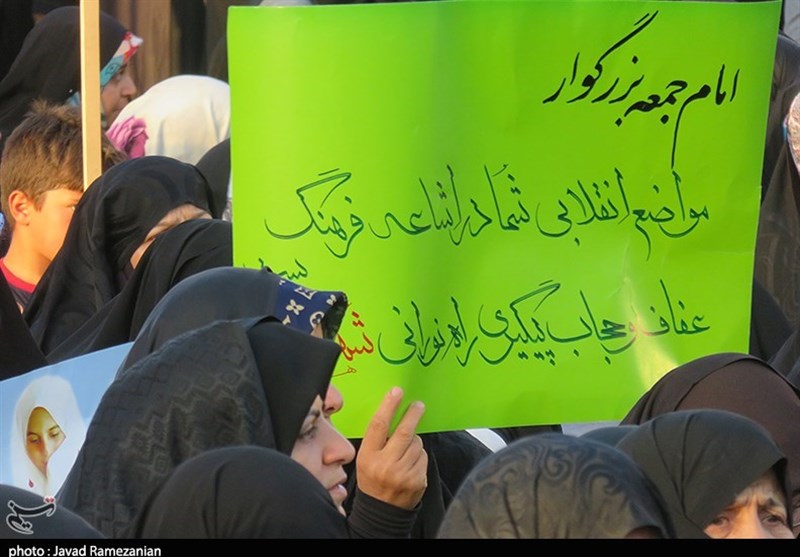 امام جمعه بزرگوار
مواضع انقلابی شما در اشاعه فرهنگ
عفاف و حجاب پیگیری راه نورانی
تسنیم
photo : Javad Ramezanian